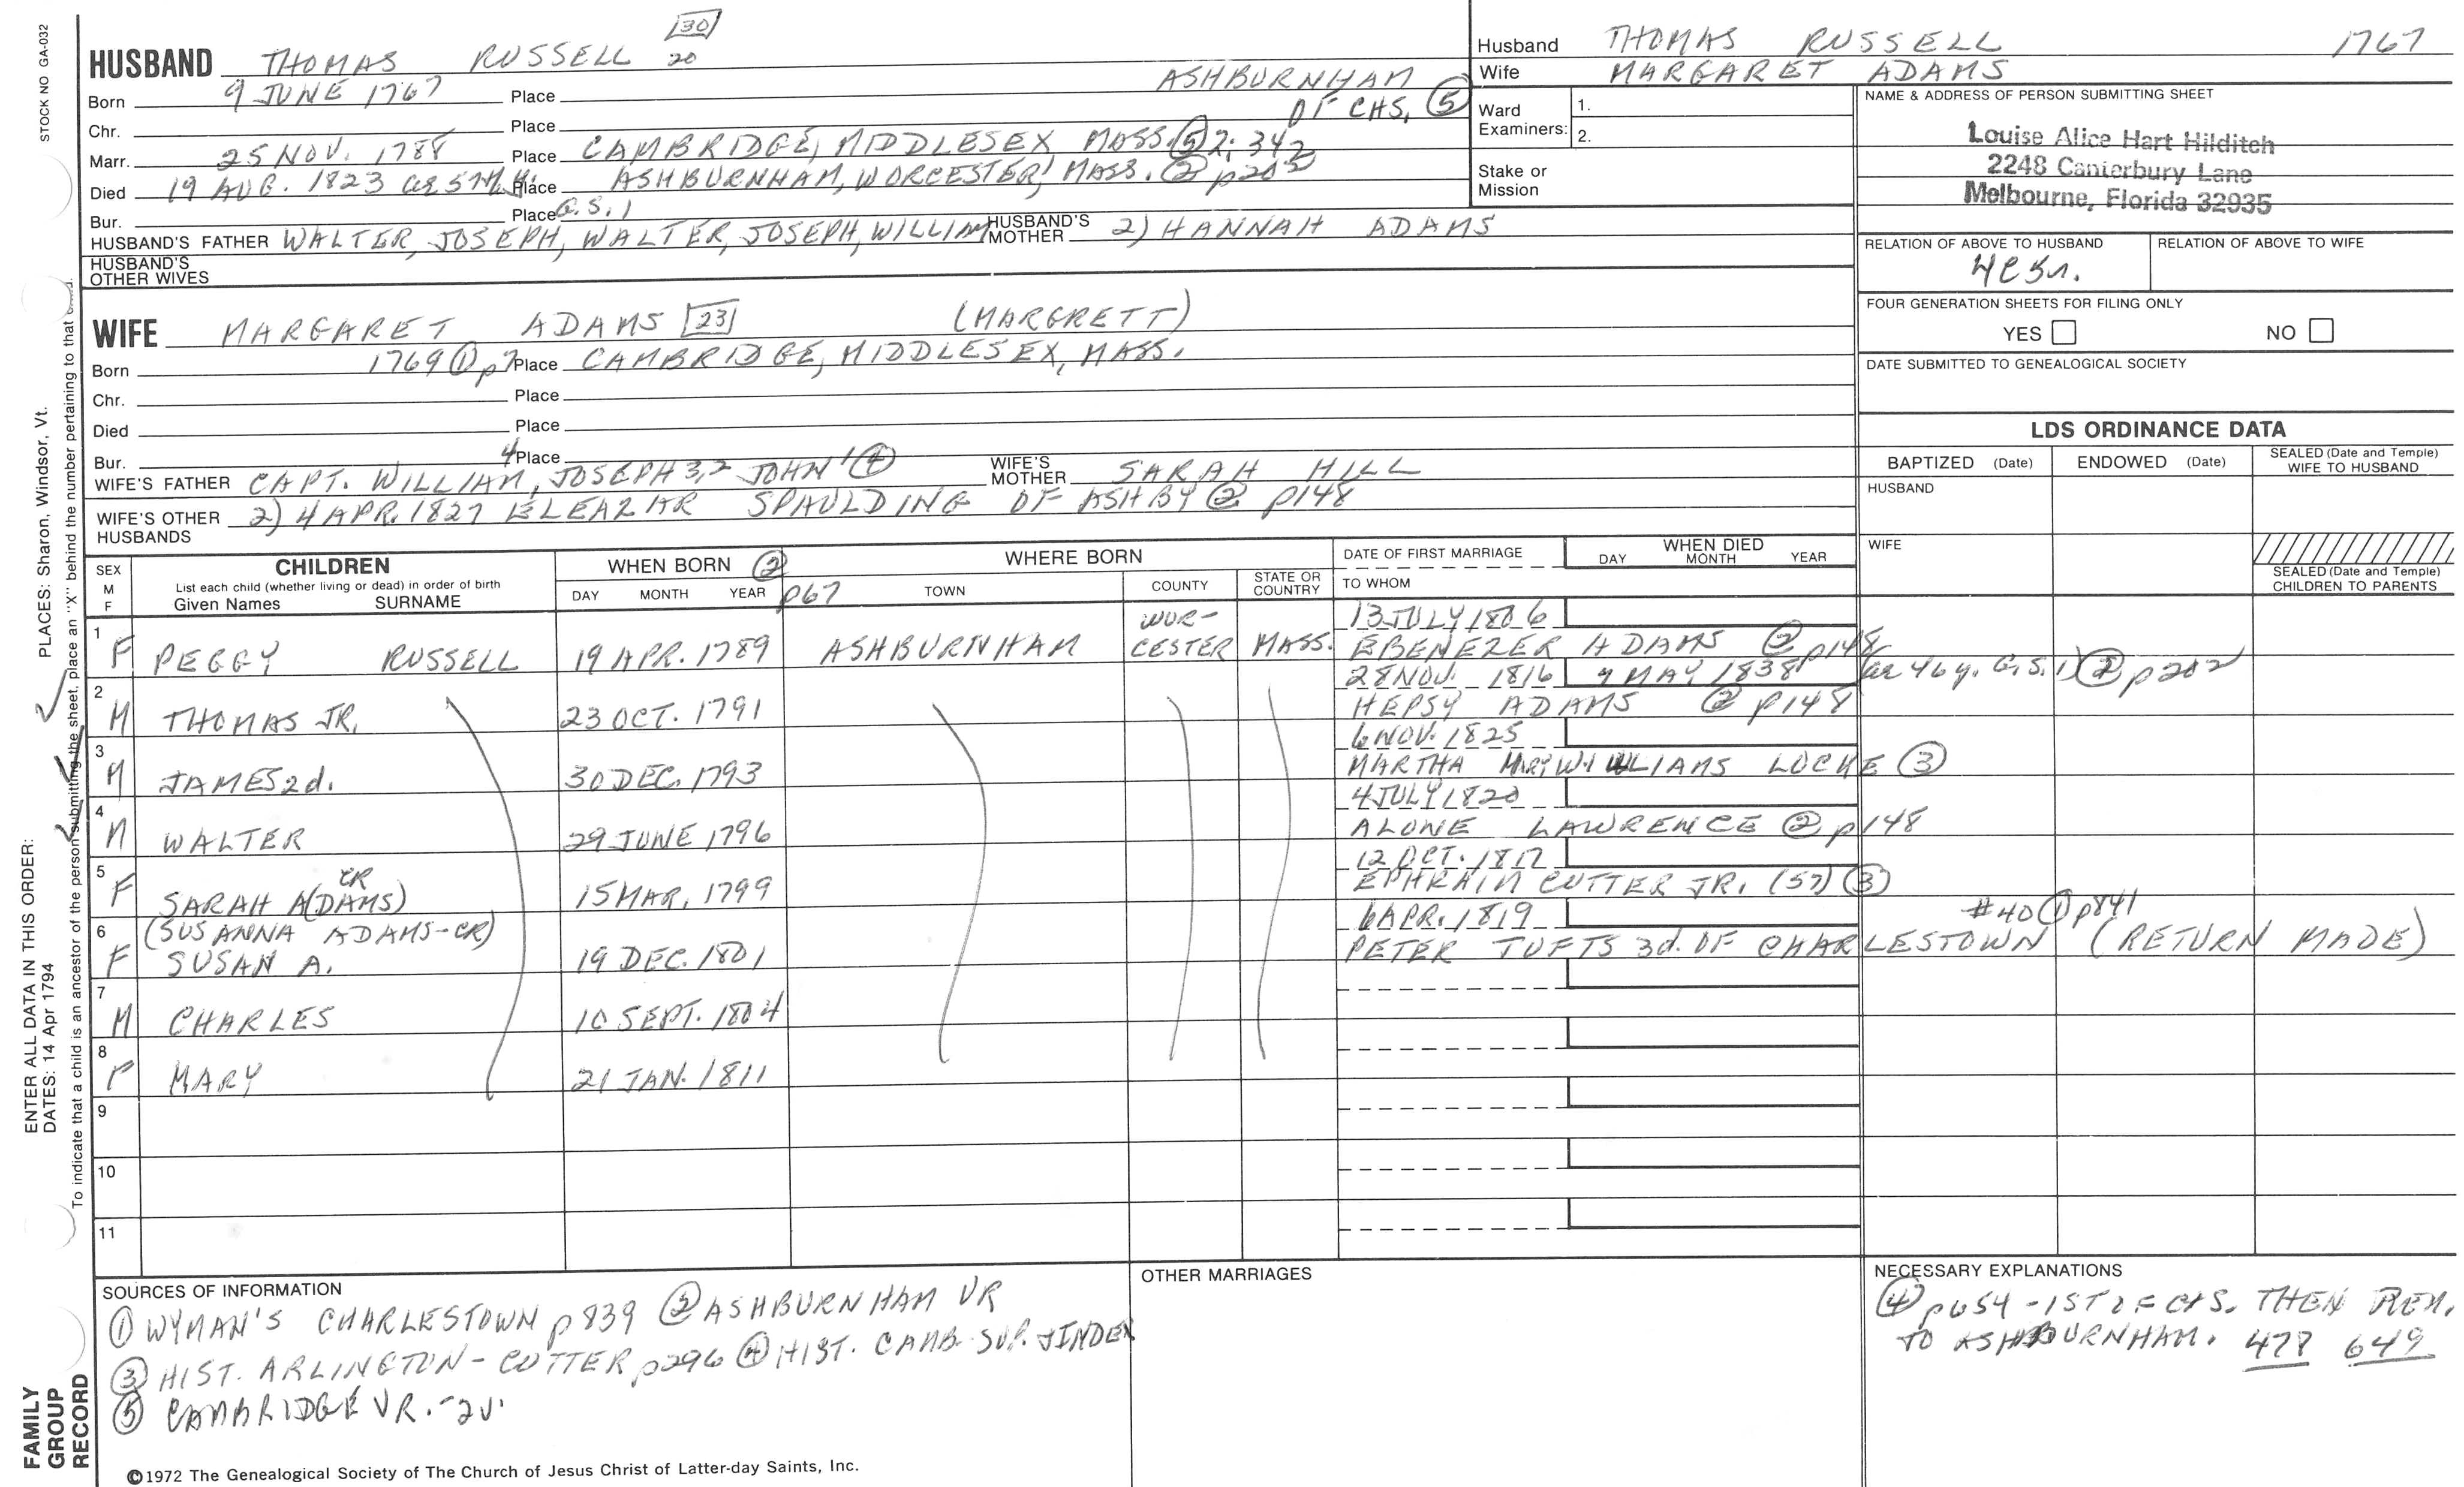 STOCK NO GA-032
[30]
HUSBAND THOMAS RUSSELL 20
Born 9 JUNE 1767 Place ASHBURNHAM
Chr. Place OF CHS. ⑤
Marr. 25 NOV. 1788 Place CAMBRIDGE, MIDDLESEX MASS. ⑤ 2; 342
Died 19 AUG. 1823 Place ASHBURNHAM, WORCESTER, MASS. ② p202
Bur. Place G.S.1
HUSBAND'S FATHER WALTER, JOSEPH, WALTER, JOSEPH, WILLIAM HUSBAND'S MOTHER 2) HANNAH ADAMS
HUSBAND'S OTHER WIVES
Husband THOMAS RUSSELL 1767
Wife MARGARET ADAMS
Ward Examiners: 1.
2.
Stake or Mission
NAME & ADDRESS OF PERSON SUBMITTING SHEET
Louise Alice Hart Hilditch
2248 Canterbury Lane
Melbourne, Florida 32935
RELATION OF ABOVE TO HUSBAND RELATION OF ABOVE TO WIFE
4C5r.
FOUR GENERATION SHEETS FOR FILING ONLY
YES NO
DATE SUBMITTED TO GENEALOGICAL SOCIETY
WIFE MARGARET ADAMS [23] (MARGRETT)
Born 1769 ① p7 Place CAMBRIDGE, MIDDLESEX, MASS.
Chr. Place
Died Place
Bur. Place
WIFE'S FATHER CAPT. WILLIAM,4 JOSEPH 3,2 JOHN 1 ④ WIFE'S MOTHER SARAH HILL
WIFE'S OTHER HUSBANDS 2) 4 APR. 1827 ELEAZAR SPAULDING OF ASHBY ② p148
LDS ORDINANCE DATA
BAPTIZED (Date) ENDOWED (Date) SEALED (Date and Temple) WIFE TO HUSBAND
HUSBAND
WIFE
SEALED (Date and Temple) CHILDREN TO PARENTS
SEX M F
CHILDREN
List each child (whether living or dead) in order of birth
Given Names SURNAME
WHEN BORN ②
DAY MONTH YEAR p67
WHERE BORN
TOWN COUNTY STATE OR COUNTRY
DATE OF FIRST MARRIAGE
TO WHOM
WHEN DIED
DAY MONTH YEAR
1 F PEGGY RUSSELL 19 APR. 1789 ASHBURNHAM WOR-CESTER MASS. 13 JULY 1806
EBENEZER ADAMS ② p148
2 M THOMAS JR. 23 OCT. 1791 28 NOV. 1816 9 MAY 1838 (ae 46 y. G.S.1) ② p202
HEPSY ADAMS ② p148
3 M JAMES 2d. 30 DEC. 1793 6 NOV. 1825
MARTHA MARY WILLIAMS LOCKE ③
4 M WALTER 29 JUNE 1796 4 JULY 1820
ALONE LAWRENCE ② p148
5 F SARAH A(DAMS) CR 15 MAR. 1799 12 OCT. 1817
EPHRAIM CUTTER JR. (57) ③
6 F (SUSANNA ADAMS-CR)
SUSAN A. 19 DEC. 1801 6 APR. 1819 #40 ① p841
PETER TUFTS 3d. OF CHARLESTOWN (RETURN MADE)
7 M CHARLES 10 SEPT. 1804
8 F MARY 21 JAN. 1811
9
10
11
SOURCES OF INFORMATION
① WYMAN'S CHARLESTOWN p839 ② ASHBURNHAM VR
③ HIST. ARLINGTON - CUTTER p296 ④ HIST. CAMB. SUP. INDEX
⑤ CAMBRIDGE VR. - 2v.
OTHER MARRIAGES
NECESSARY EXPLANATIONS
④ p654 - 1ST OF CHS. THEN REM.
TO ASHBURNHAM. 478 649
©1972 The Genealogical Society of The Church of Jesus Christ of Latter-day Saints, Inc.
FAMILY GROUP RECORD
ENTER ALL DATA IN THIS ORDER:
DATES: 14 Apr 1794
PLACES: Sharon, Windsor, Vt.
To indicate that a child is an ancestor of the person submitting the sheet, place an "X" behind the number pertaining to that